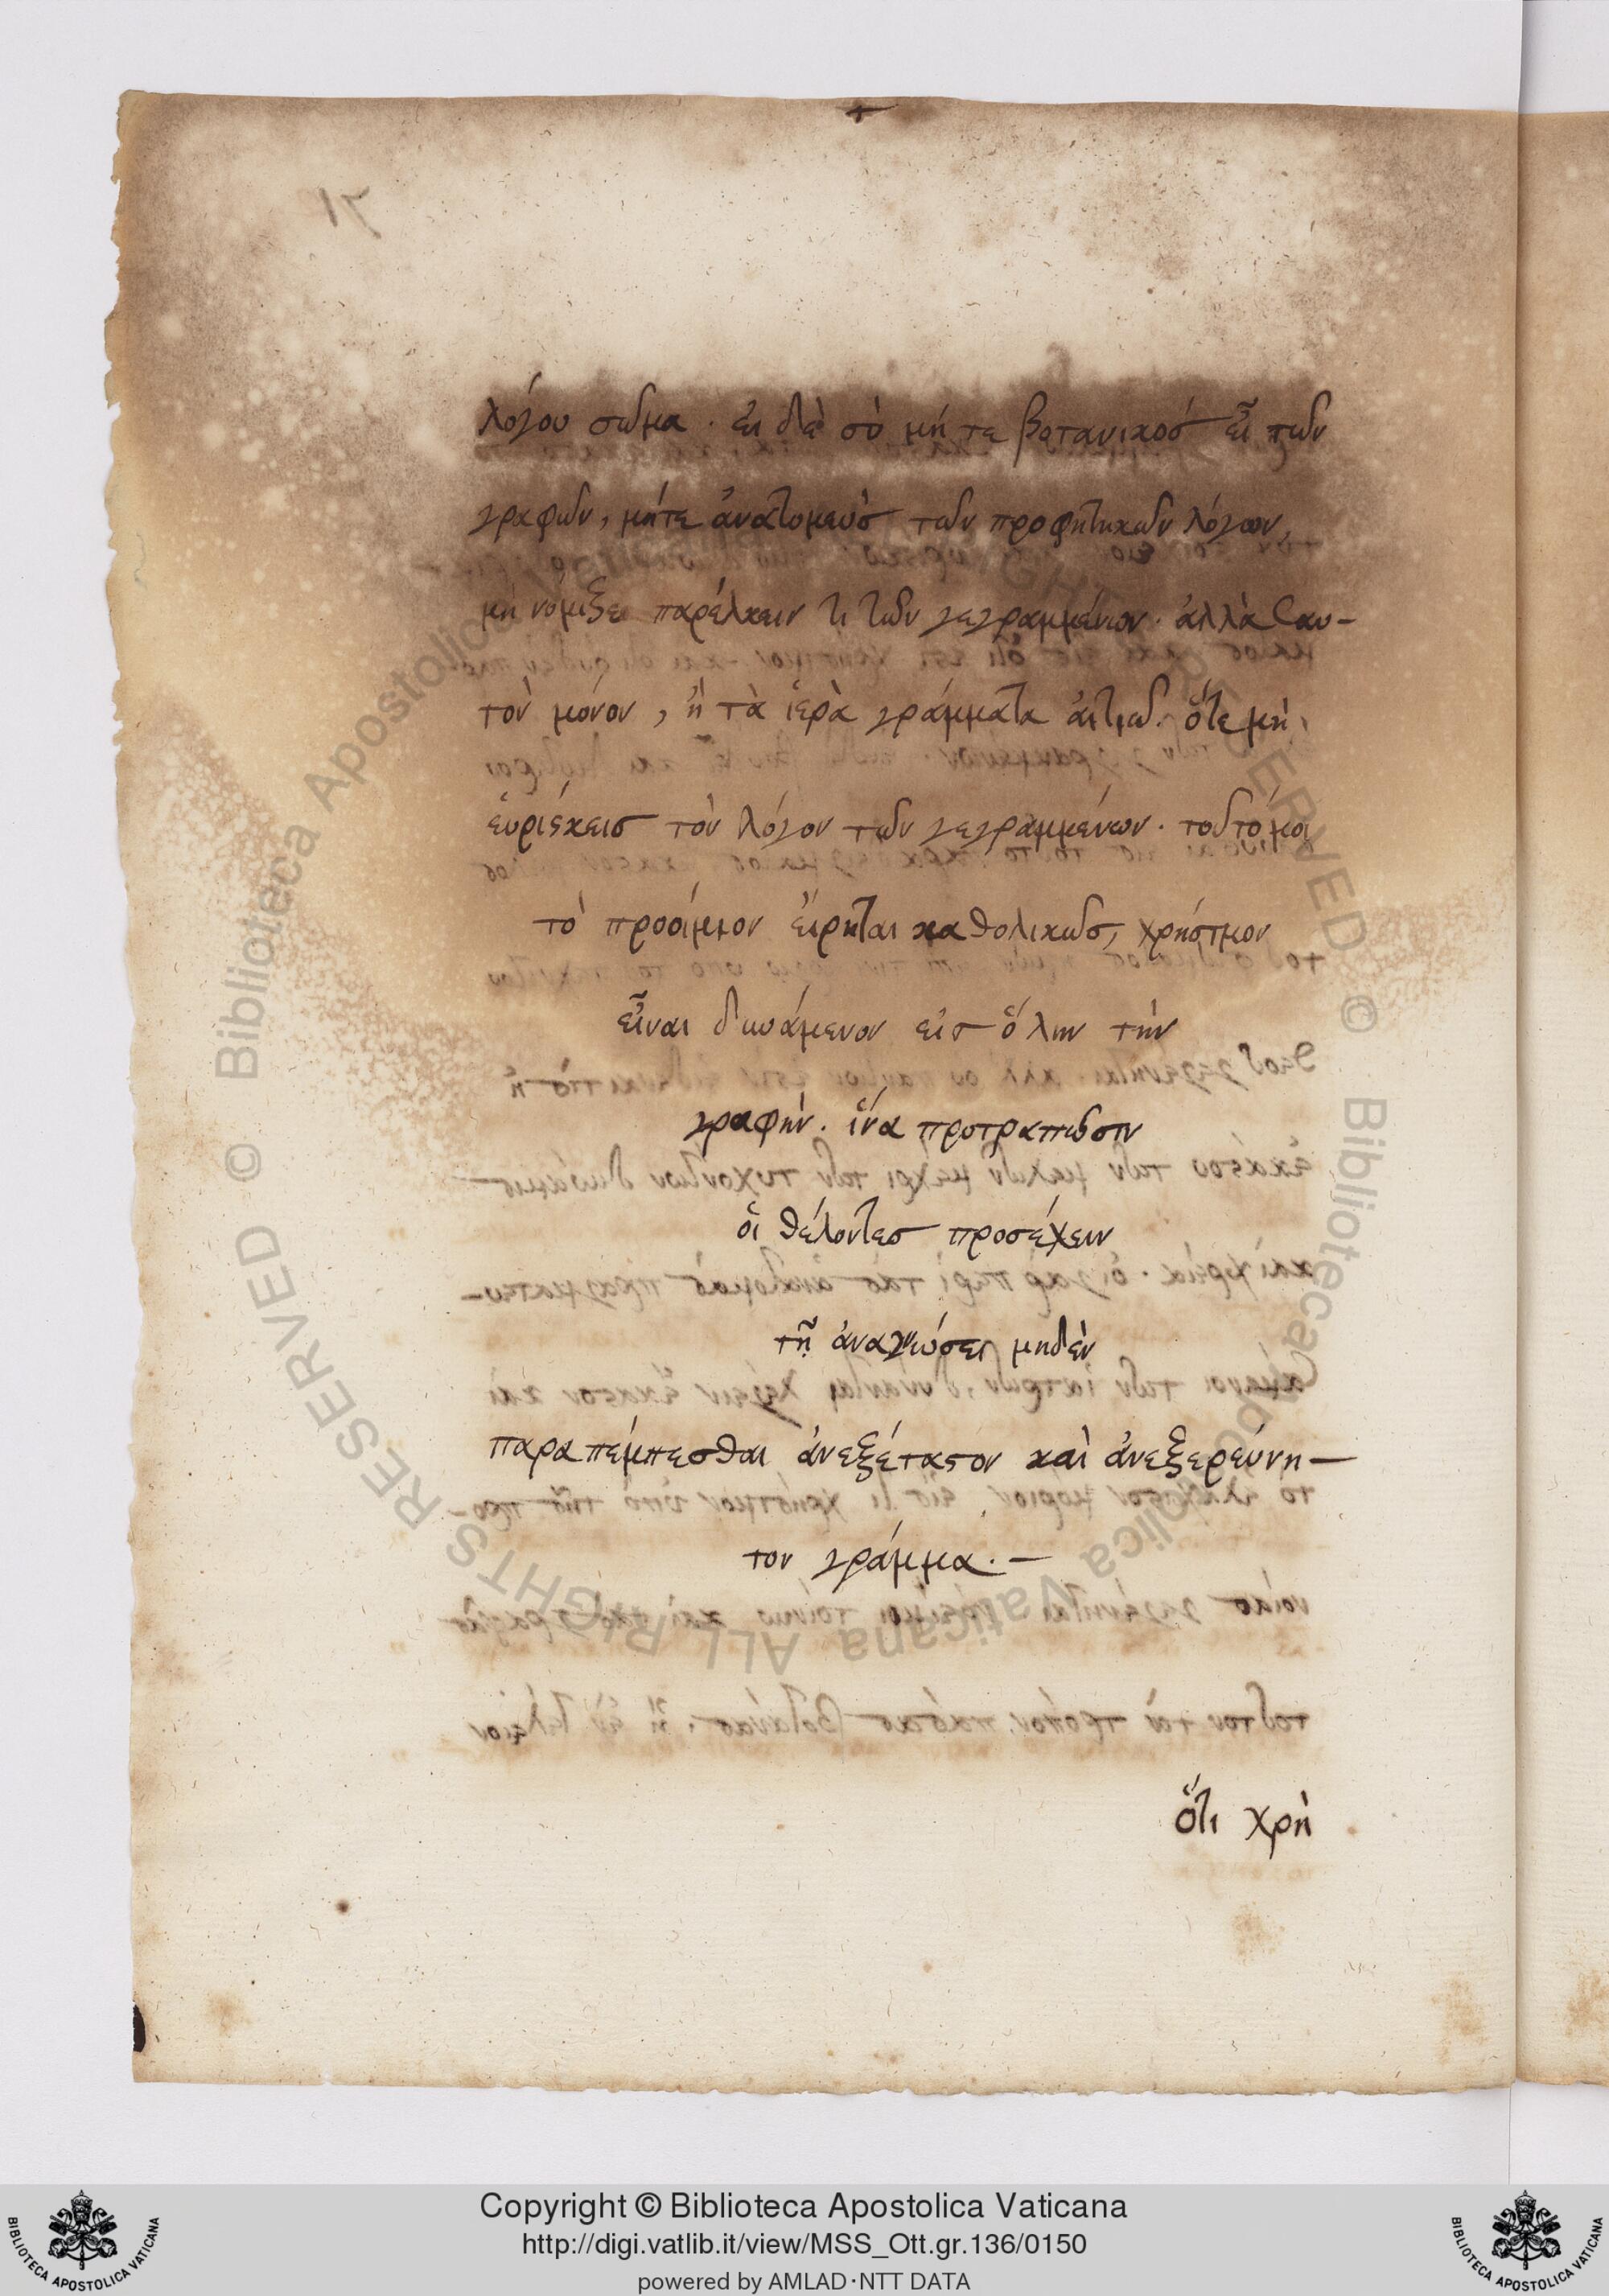 λόγου σῶμα · εἰ δὲ σὺ μήτε βοτανικὸς εἶ τῶν
γραφῶν, μήτε ἀνατομεὺς τῶν προφητικῶν λόγων,
μὴ νόμιζε παρέλκειν τι τῶν γεγραμμένων· ἀλλὰ σαυ-
τὸν μόνον, ἢ τὰ ἱερὰ γράμματα αἰτιῶ. ὅτε μὴ
εὑρίσκεις τὸν λόγον τῶν γεγραμμένων. τοῦτό μοι
τὸ προοίμιον εἴρηται καθολικῶς, χρήσιμον
εἶναι δυνάμενον εἰς ὅλην τὴν
γραφήν. ἵνα προτραπῶσιν
οἱ θέλοντες προσέχειν
τῇ ἀναγνώσει μηδὲν
παραπέμπεσθαι ἀνεξέταστον καὶ ἀνεξερεύνη-
τον γράμμα. —
ὅτι χρὴ
Copyright © Biblioteca Apostolica Vaticana
http://digi.vatlib.it/view/MSS_Ott.gr.136/0150
powered by AMLAD·NTT DATA
BIBLIOTECA APOSTOLICA VATICANA
BIBLIOTECA APOSTOLICA VATICANA
© Biblioteca Apostolica Vaticana ALL RIGHTS RESERVED